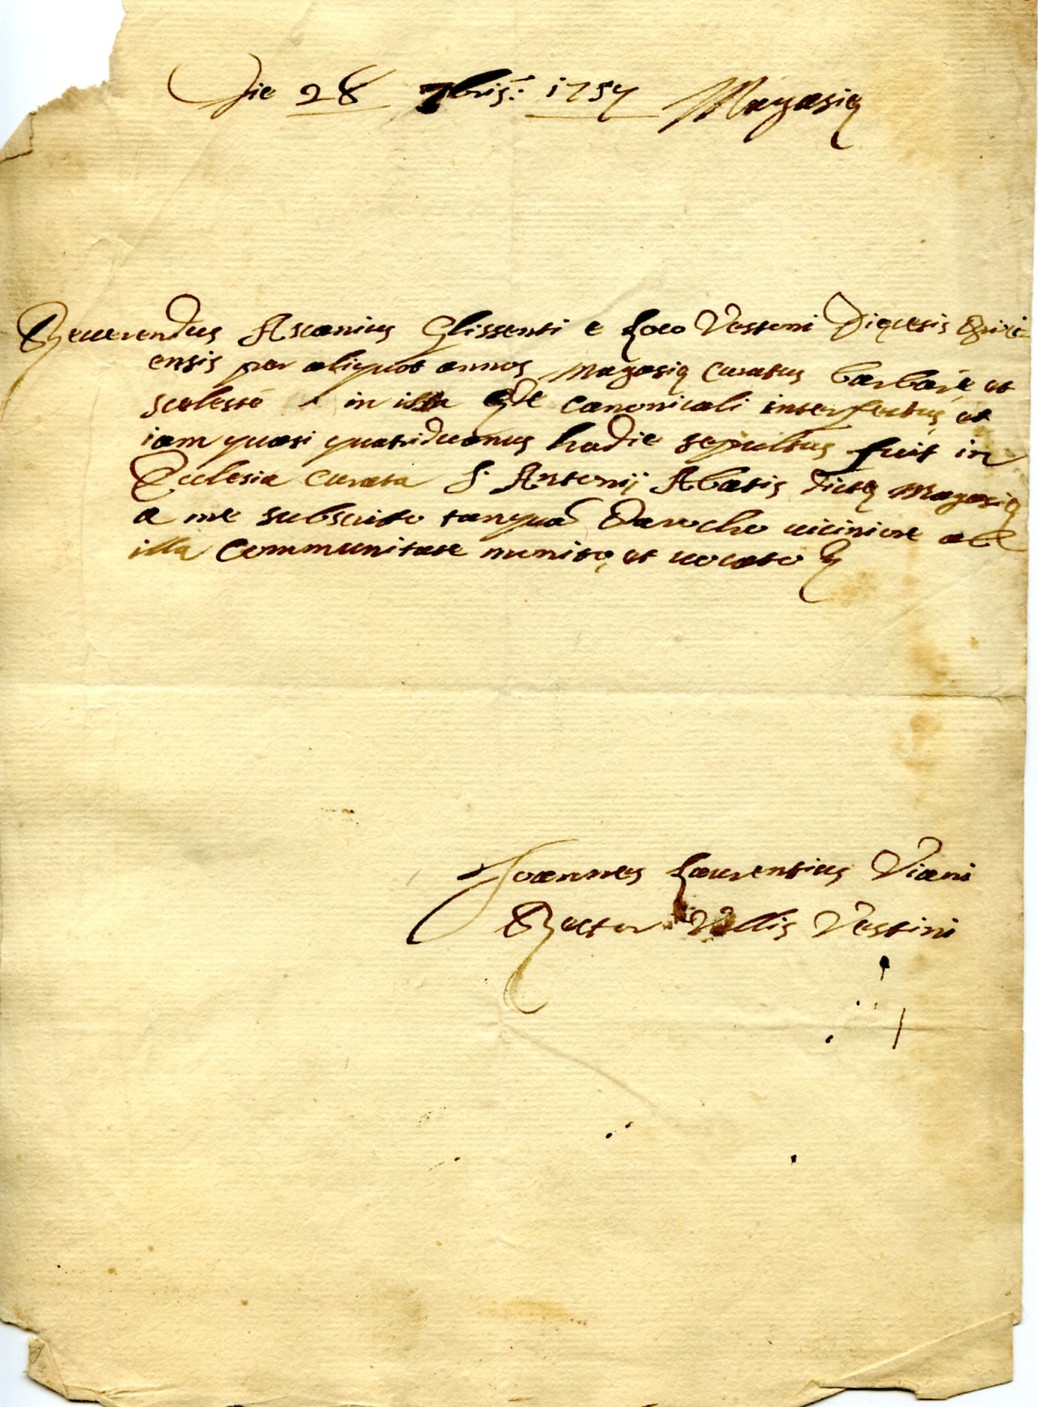 Die 28 7bris: 1757 Magasię
Reverendus Ascanius Glissenti e loco Vestoni Dięcesis Brixi
ensis per aliquot annos Magasię Curatus barbarè et
scelestè in illa Canonicali interfectus, et
iam quasi quatriduanus hodie sepultus fuit in
Ecclesia Curata S. Antonij Abatis dictę Magasię
a me subscritto tanquā Parocho viciniore ab
illa Communitate monito, et vocato
Joannes Laurentius Viani
Rector Vallis Vestini